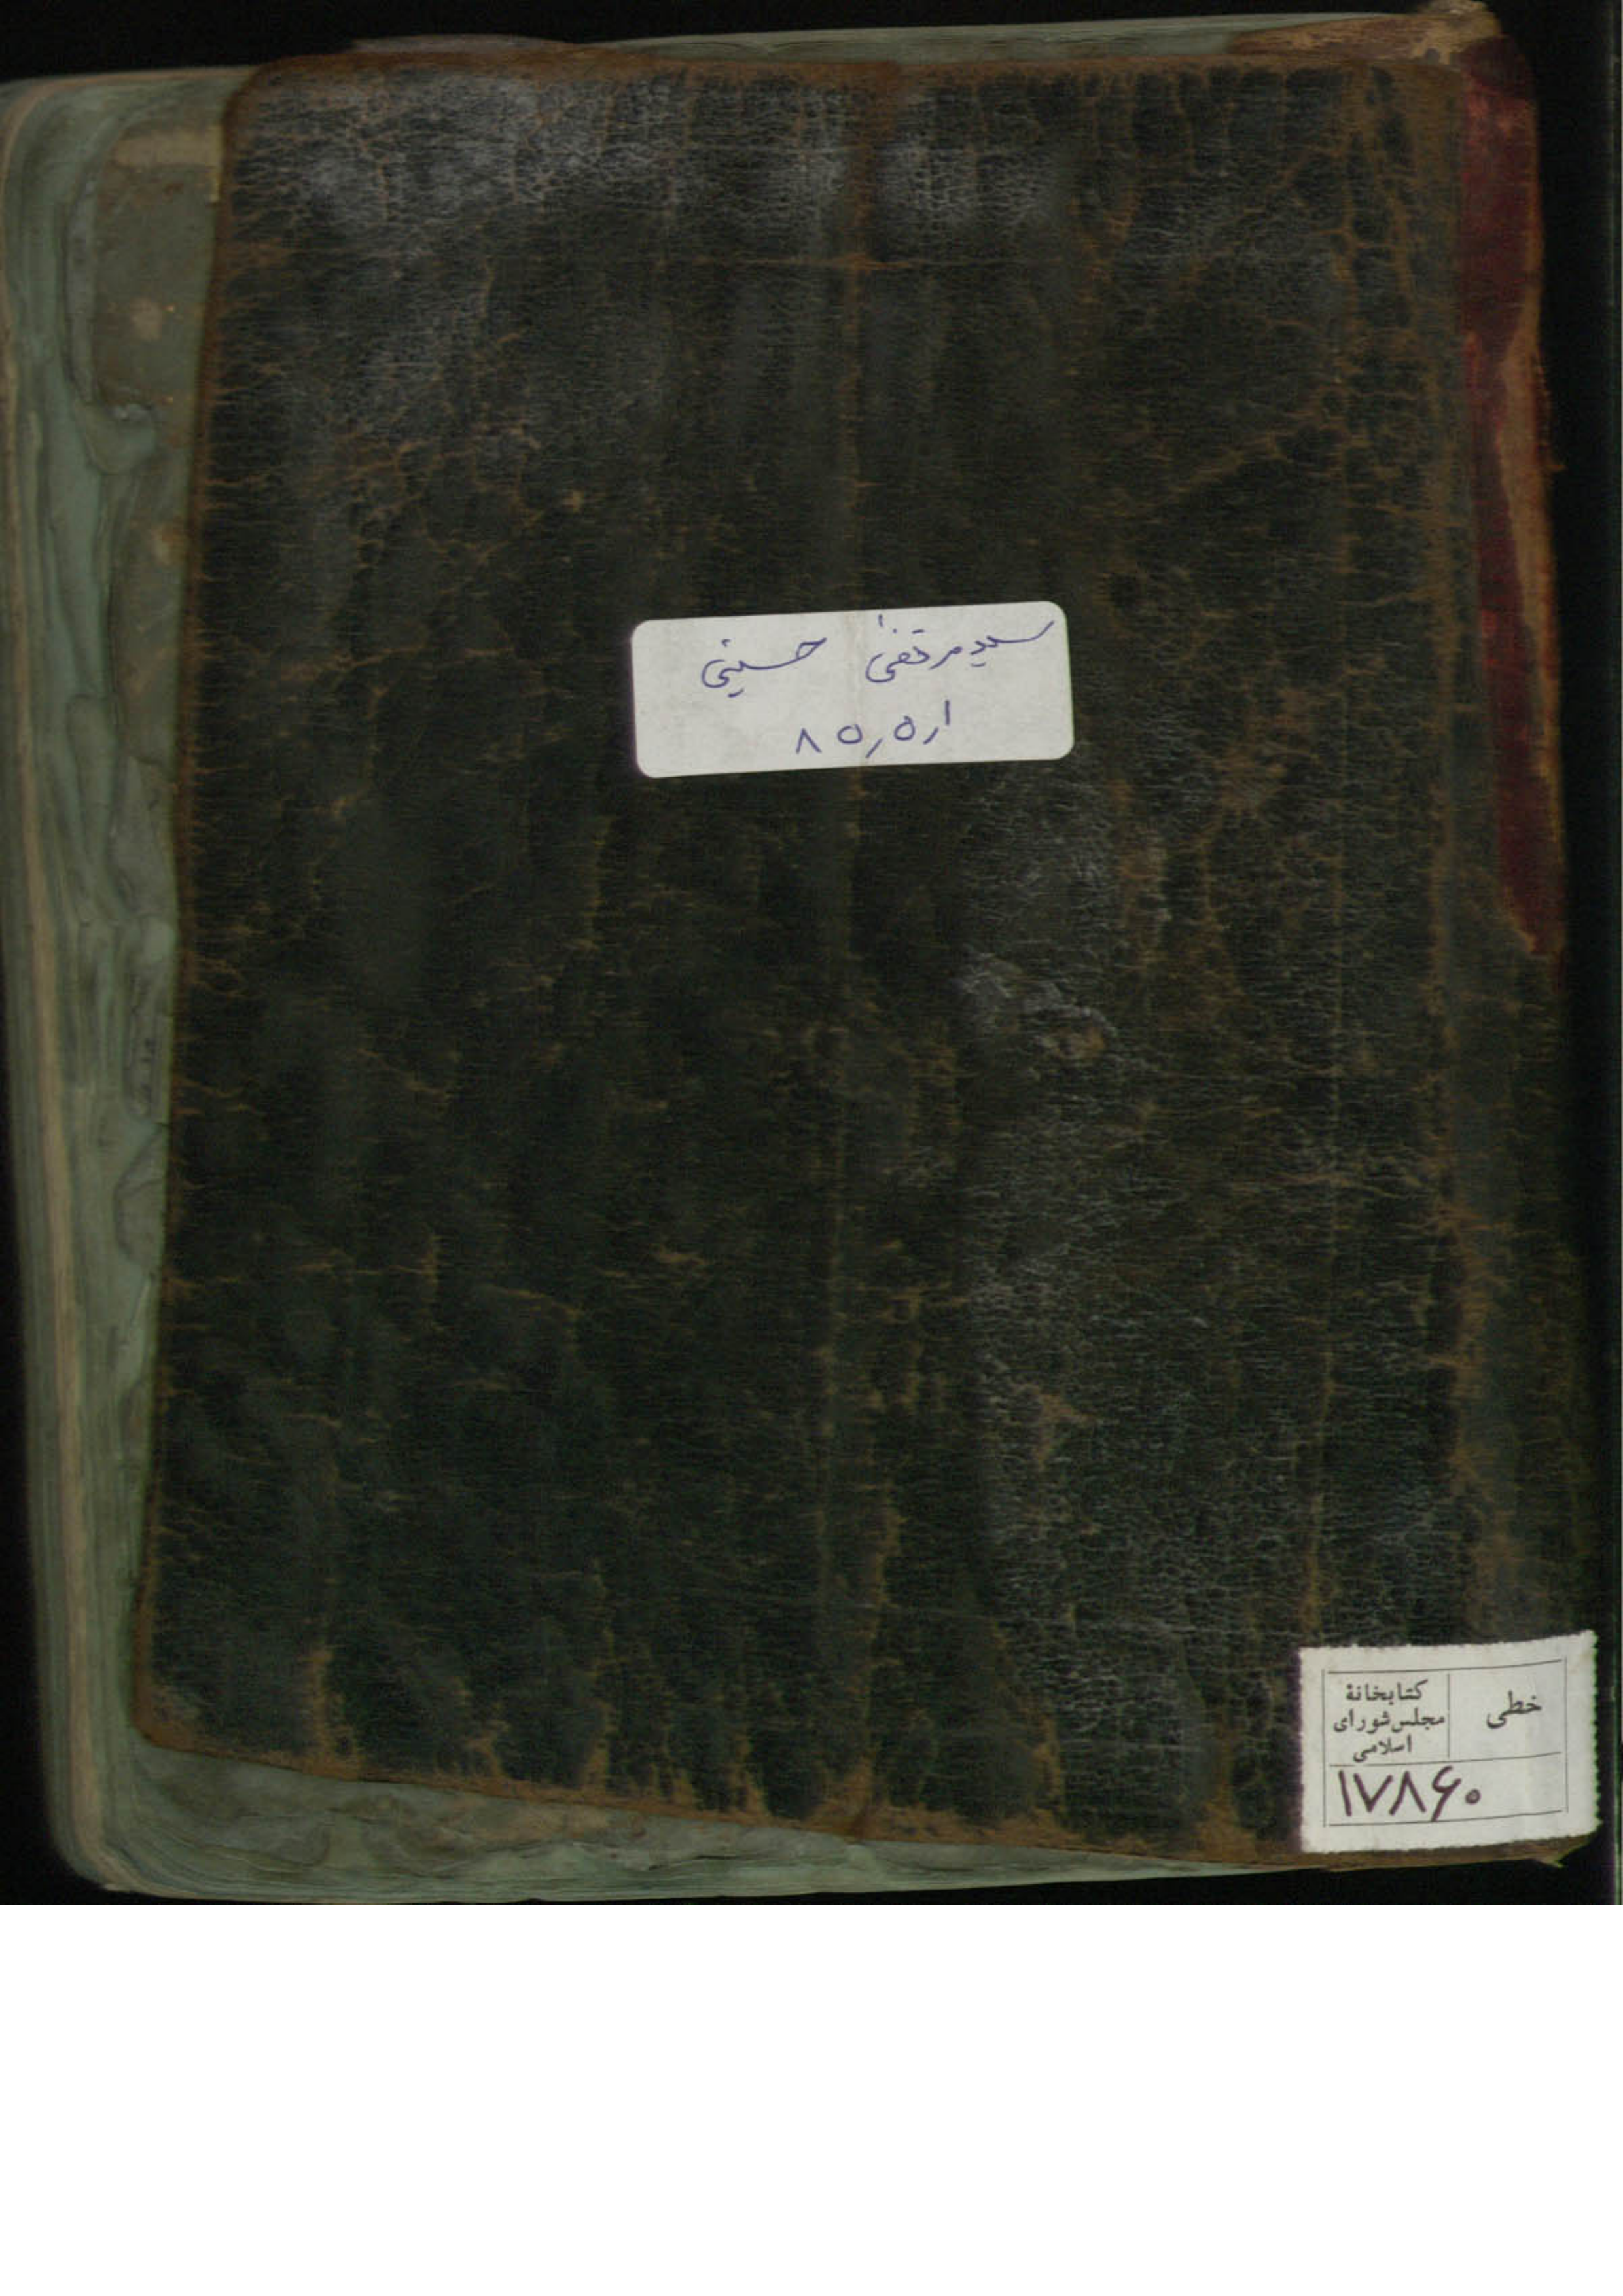 سید مرتضیٰ حسینی
۸۵٫۵٫۱
خطی
کتابخانهٔ
مجلس شورای
اسلامی
۱۷۸۶۰